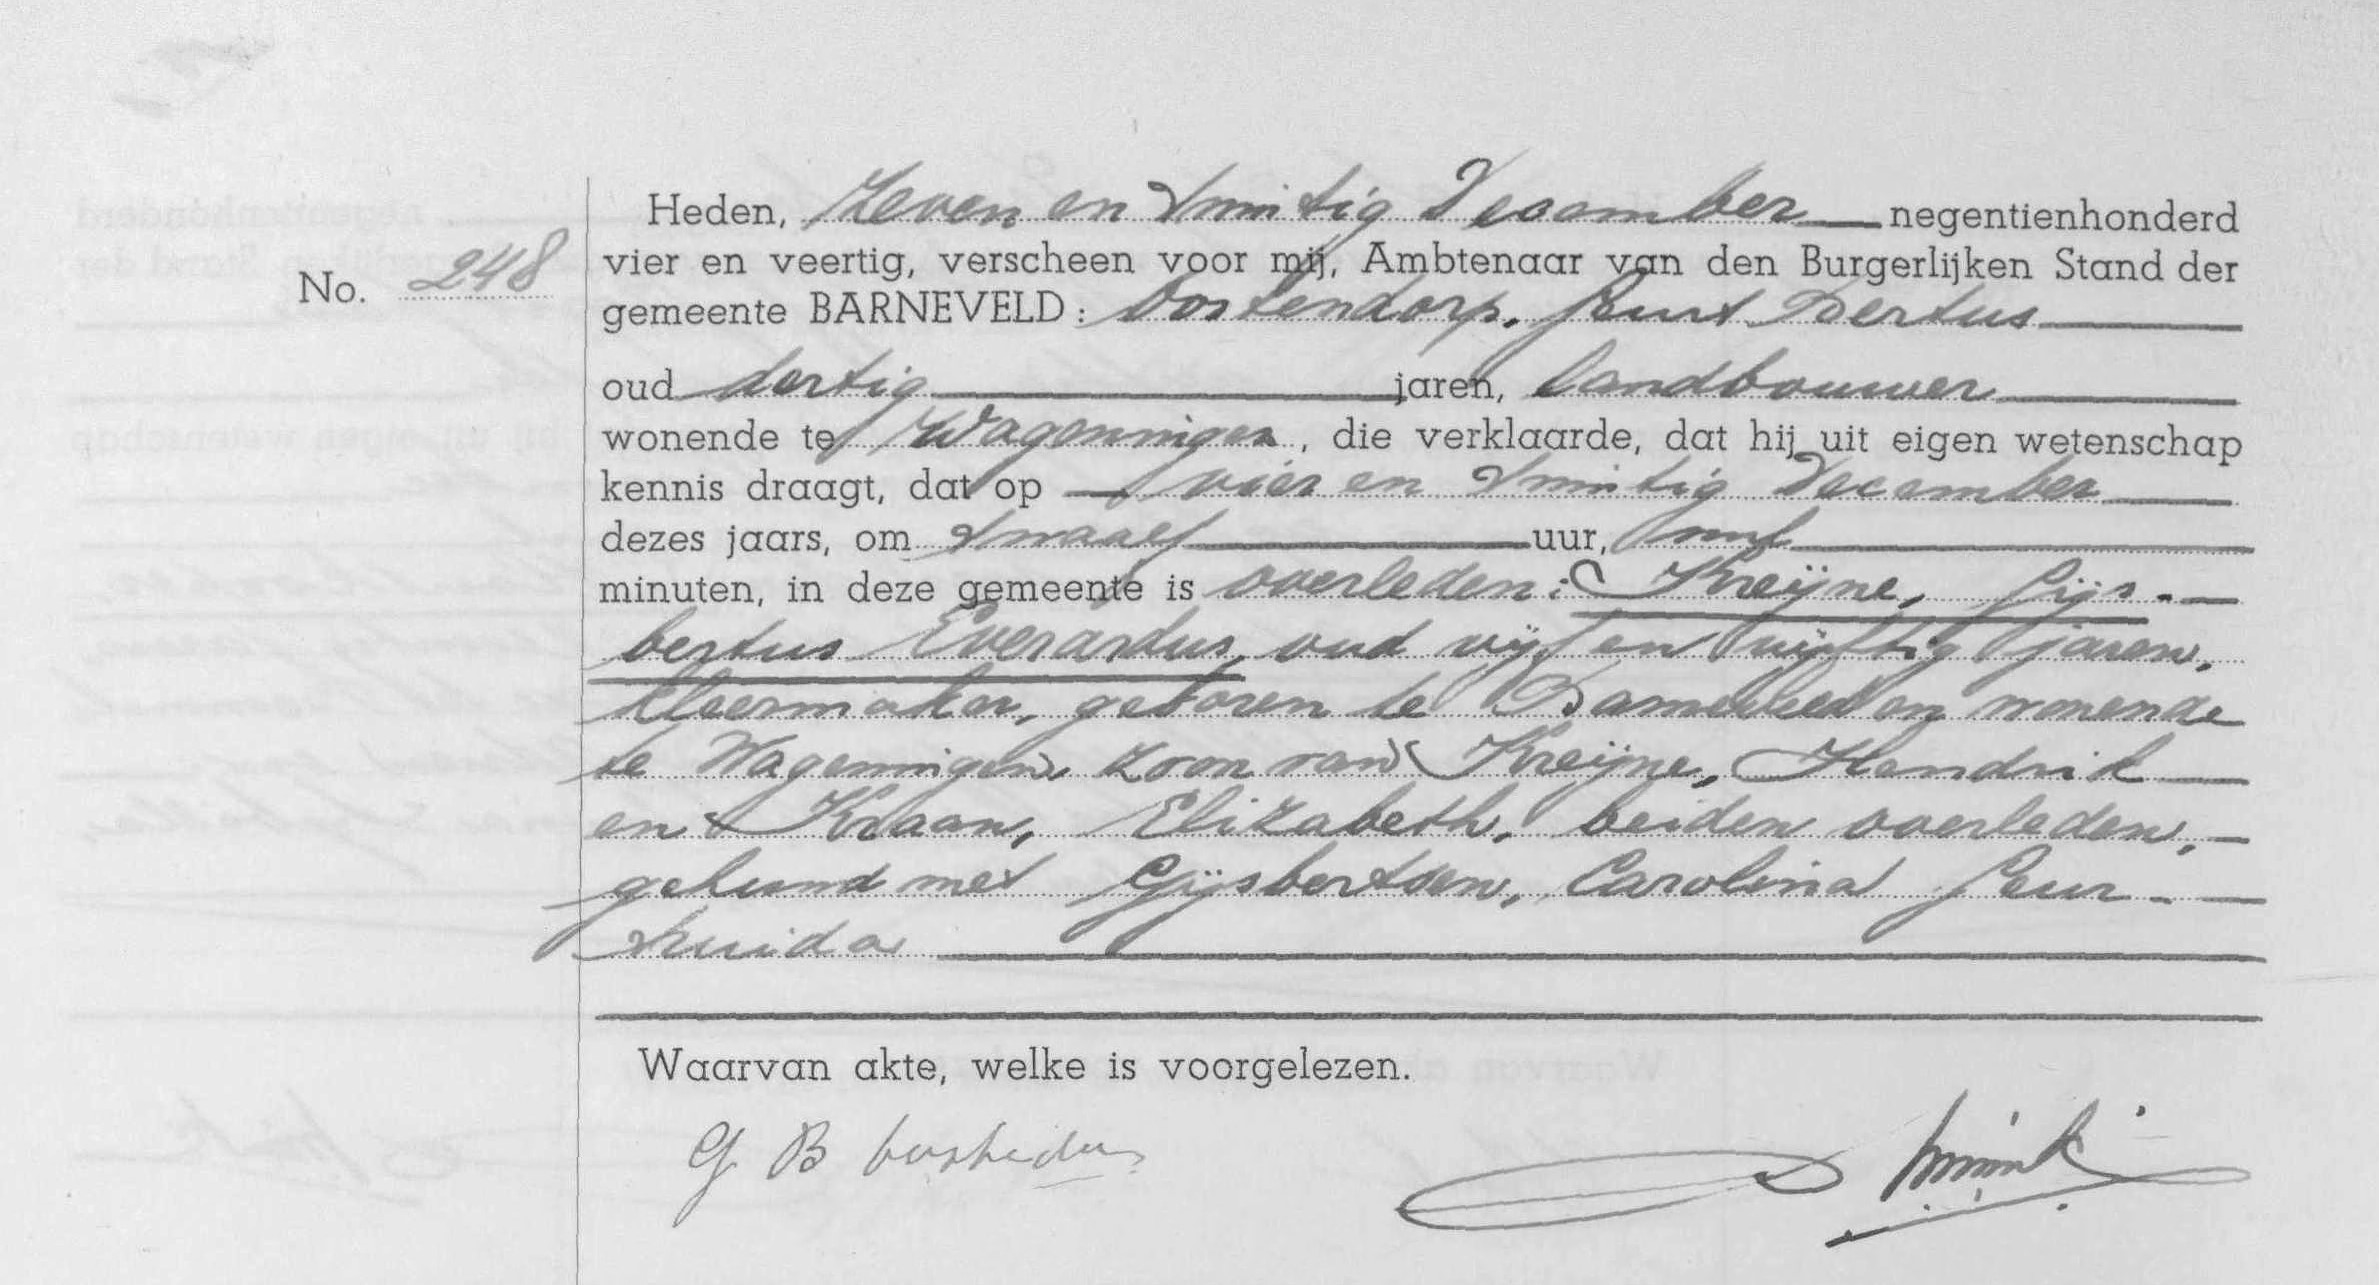 No. 248
Heden, Zeven en twintig December negentienhonderd
vier en veertig, verscheen voor mij, Ambtenaar van den Burgerlijken Stand der
gemeente BARNEVELD: Oostendorp, Geurt Bertus
oud dertig jaren, landbouwer
wonende te Wageningen, die verklaarde, dat hij uit eigen wetenschap
kennis draagt, dat op vier en twintig December
dezes jaars, om twaalf uur, nul
minuten, in deze gemeente is overleden: Kreijne, Gijs-
bertus Everardus, oud vijf en vijftig jaren,
kleermaker, geboren te Barneveld en wonende
te Wageningen, zoon van Kreijne, Hendrik
en Kraan, Elizabeth, beiden overleden,
gehuwd met Gijsbertsen, Carolina Geur-
truida
Waarvan akte, welke is voorgelezen.
G B